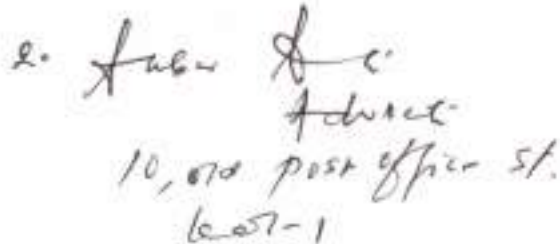 2.
Advocate
10, old post office st.
Kol-1